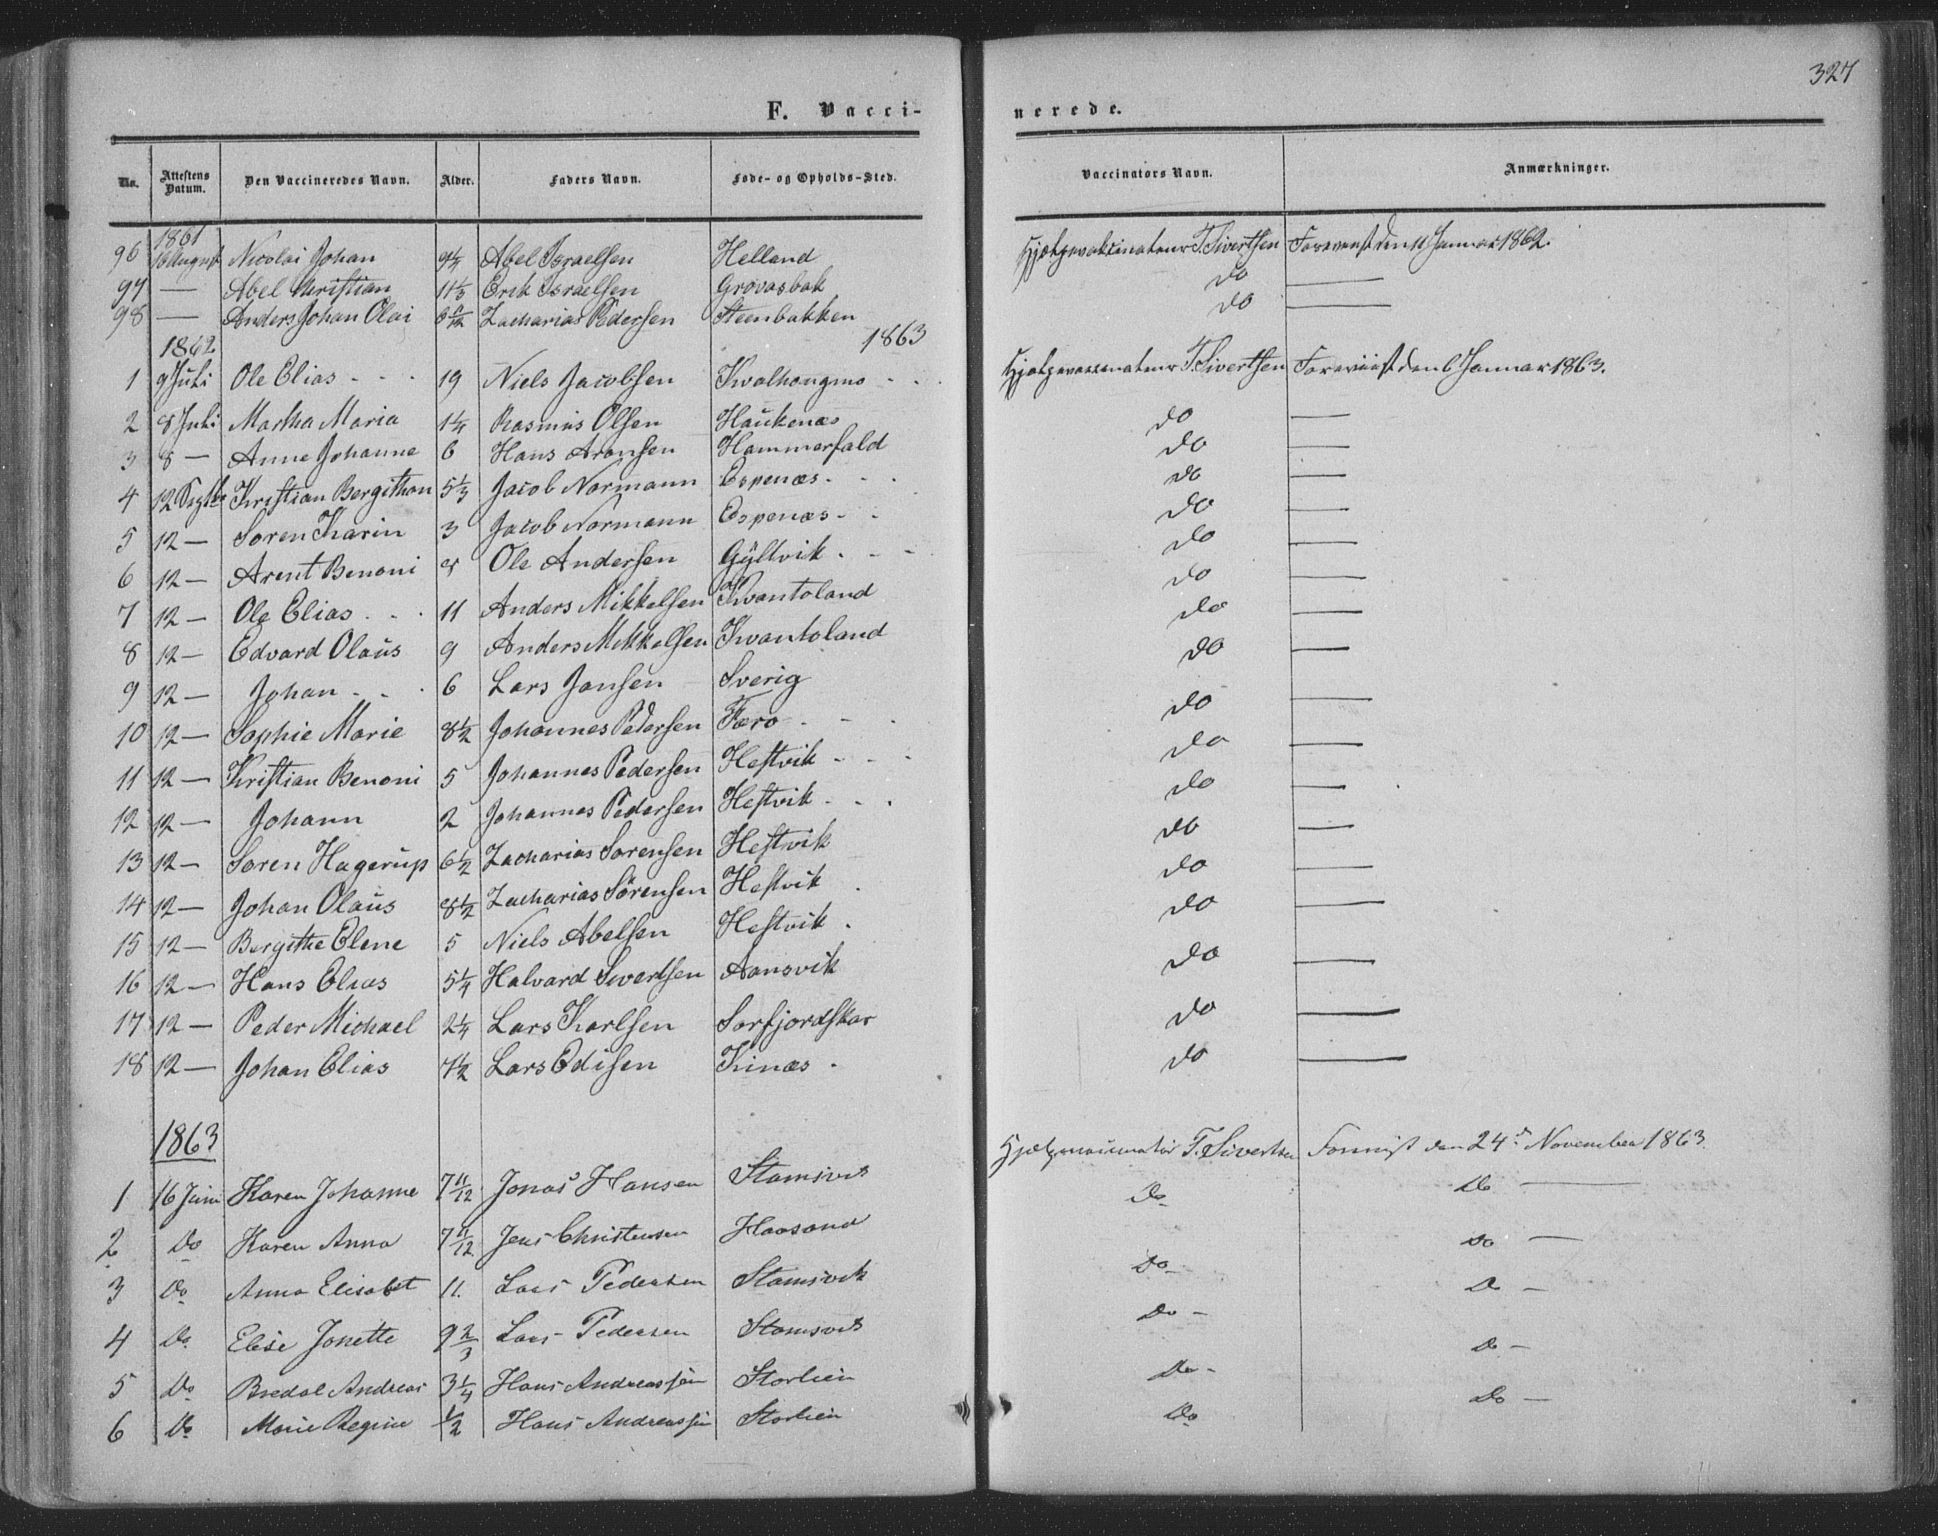 327
F. Vaccinerede.
No. | Attestens Datum. | Den Vaccineredes Navn. | Alder. | Faders Navn. | Føde- og Opholds-Sted. | Vaccinators Navn. | Anmærkninger.
1861
96 | 16 August | Nicolai Johan | 9 1/4 | Abel Israelsen | Helland | Hjælpevaksinateur T. Sivertsen | Foreviist den 11 Januar 1862.
97 | — | Abel Kristian | 11 1/3 | Erik Israelsen | Grovasbak | do | —
98 | — | Anders Johan Olai | | Zacharias Pedersen | Steenbakken | do | —
1862 | 1863
1 | 9 Juli | Ole Elias | 19 | Niels Jacobsen | Kvalhougmo | Hjælpevaccinateur T. Sivertsen | Foreviist den 6 Januar 1863.
2 | 8 Juli | Martha Maria | 1 1/4 | Rasmus Olsen | Haukenæs | do | —
3 | 8 — | Anne Johanne | 6 | Hans Aronsen | Hammerfald | do | —
4 | 12 Septbr | Kristian Bergithon | 5 1/3 | Jacob Normann | Espenæs | do | —
5 | 12 — | Søren Karin | 3 | Jacob Normann | Espenæs | do | —
6 | 12 — | Arent Benoni | | Ole Andersen | Gyltvik | do | —
7 | 12 — | Ole Elias | 11 | Anders Mikkelsen | Kvantoland | do | —
8 | 12 — | Edvard Olaus | 9 | Anders Mikkelsen | Kvantoland | do | —
9 | 12 — | Johan | 6 | Lars Jansen | Sverig | do | —
10 | 12 — | Sophie Marie | 8 1/2 | Johannes Pedersen | Færo | do | —
11 | 12 — | Kristian Benoni | 5 | Johannes Pedersen | Hestvik | do | —
12 | 12 — | Johann | 2 | Johannes Pedersen | Hestvik | do | —
13 | 12 — | Søren Hagerup | 6 1/2 | Zacharias Sørensen | Hestvik | do | —
14 | 12 — | Johan Olaus | 8 1/2 | Zacharias Sørensen | Hestvik | do | —
15 | 12 — | Bergithe Elene | 5 | Niels Abelsen | Hestvik | do | —
16 | 12 — | Hans Elias | 5 1/4 | Halvard Sivertsen | Aansvik | do | —
17 | 12 — | Peder Michael | 2 1/4 | Lars Karlsen | Sørfjordskar | do | —
18 | 12 — | Johan Elias | 7 1/2 | Lars Edisen | Kinæs | do | —
1863
Hjælpevaccinatør T. Sivertsen | Foreviist den 24d November 1863.
1 | 16 Juni | Karen Johanne | 7 11/12 | Jonas Hansen | Stamsvik | Do | Do —
2 | Do | Karen Anna | 7 11/12 | Jens Christensen | Haasand | Do | Do —
3 | Do | Anna Elisabet | 11. | Lars Pedersen | Stamsvik | Do — | Do —
4 | Do | Elise Jonette | 9 2/3 | Lars Pedersen | Stamsvik | Do — | Do —
5 | Do | Bredal Andreas | 3 1/4 | Hans Andreassen | Storlien | Do | Do —
6 | Do | Marie Regine | 1/2 | Hans Andreassen | Storlien